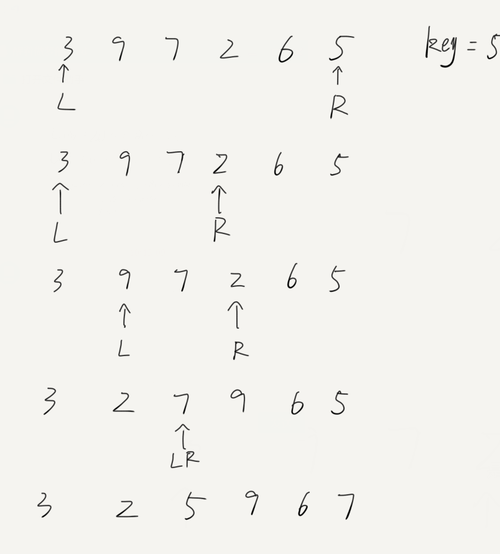 3 9 7 2 6 5 key = 5
↑ ↑
L R
3 9 7 2 6 5
↑ ↑
L R
3 9 7 2 6 5
↑ ↑
L R
3 2 7 9 6 5
↑
LR
3 2 5 9 6 7